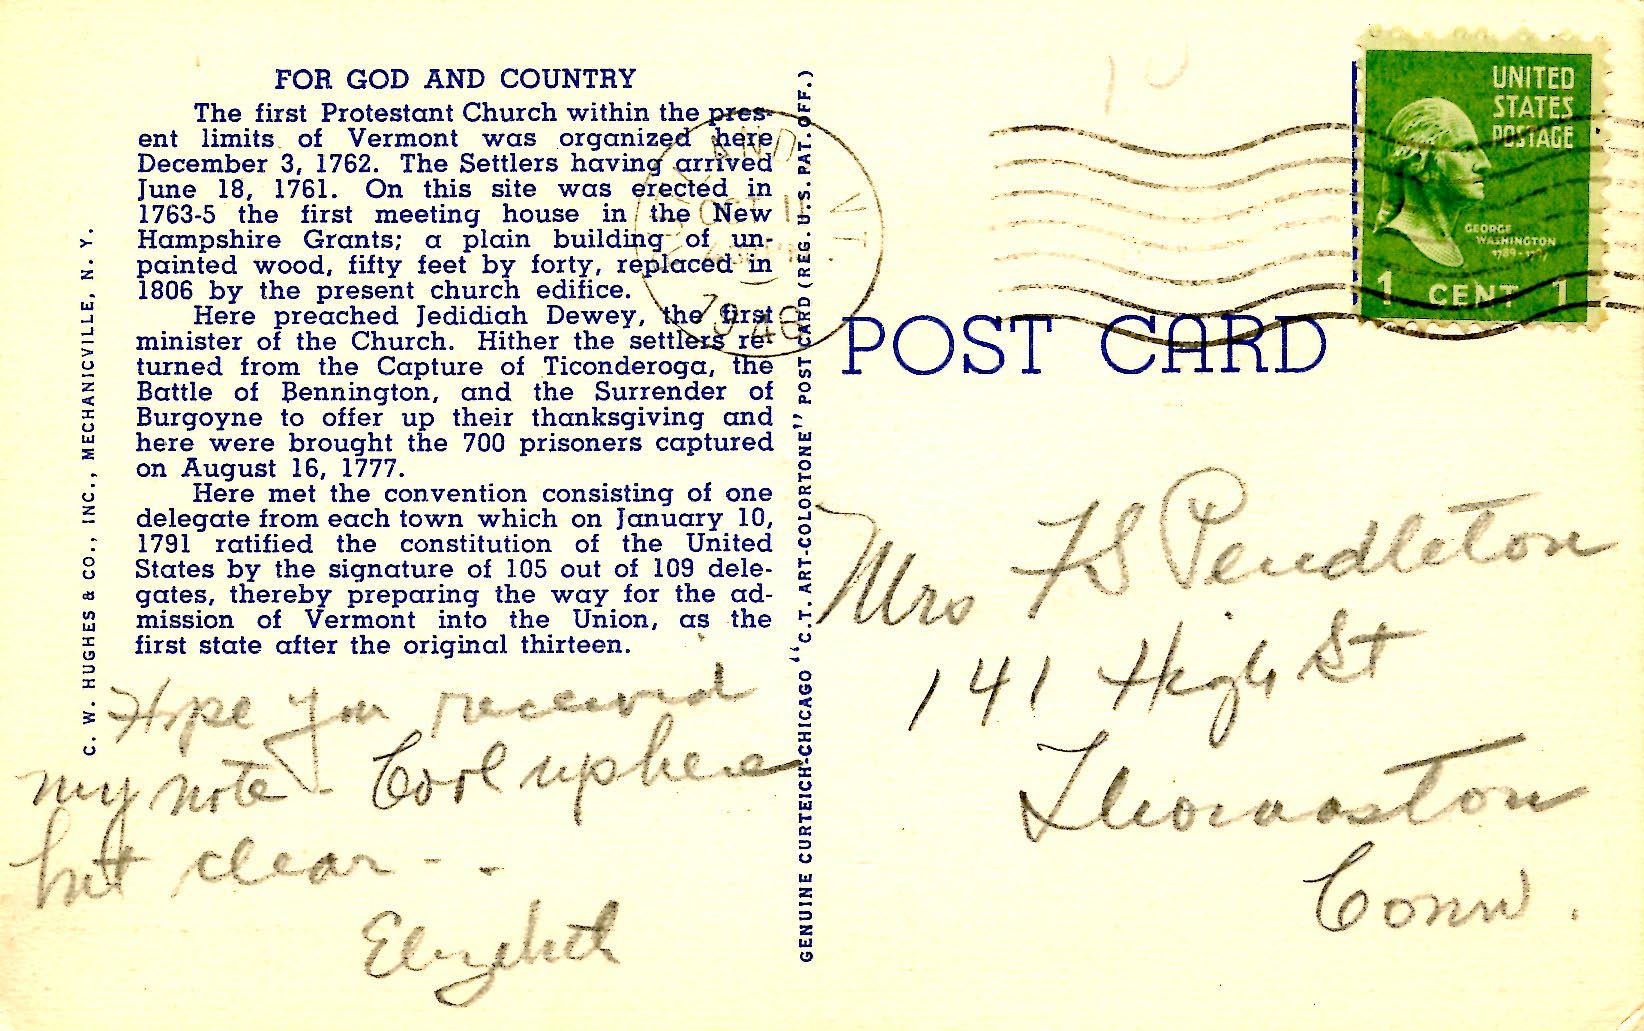 FOR GOD AND COUNTRY
The first Protestant Church within the pres-
ent limits of Vermont was organized here
December 3, 1762. The Settlers having arrived
June 18, 1761. On this site was erected in
1763-5 the first meeting house in the New
Hampshire Grants; a plain building of un-
painted wood, fifty feet by forty, replaced in
1806 by the present church edifice.
Here preached Jedidiah Dewey, the first
minister of the Church. Hither the settlers re-
turned from the Capture of Ticonderoga, the
Battle of Bennington, and the Surrender of
Burgoyne to offer up their thanksgiving and
here were brought the 700 prisoners captured
on August 16, 1777.
Here met the convention consisting of one
delegate from each town which on January 10,
1791 ratified the constitution of the United
States by the signature of 105 out of 109 dele-
gates, thereby preparing the way for the ad-
mission of Vermont into the Union, as the
first state after the original thirteen.
Hope you received
my note - Cool up here
but clear - -
Elizabeth
C. W. HUGHES & CO., INC., MECHANICVILLE, N. Y.
GENUINE CURTEICH-CHICAGO "C.T. ART-COLORTONE" POST CARD (REG. U.S. PAT. OFF.)
VT.
UNITED
STATES
POSTAGE
GEORGE
WASHINGTON
1 CENT 1
POST CARD
Mrs F S Pendleton
141 High St
Thomaston
Conn.